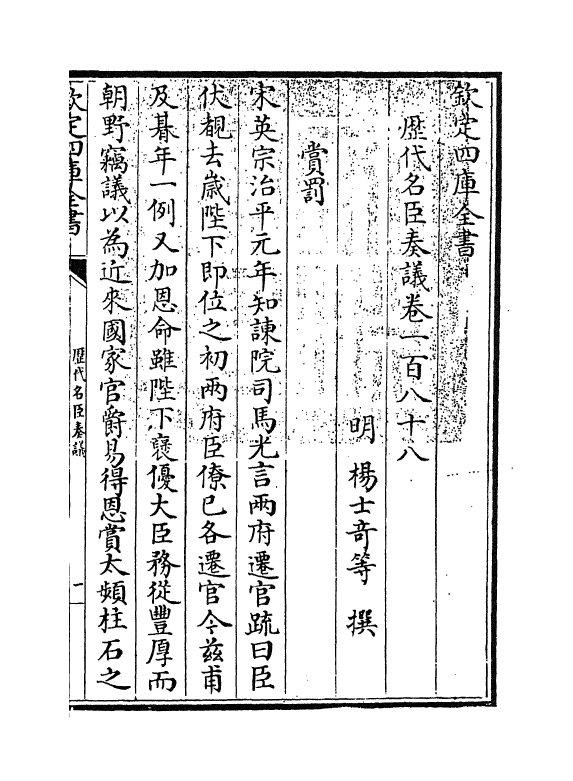 欽定四庫全書
歴代名臣奏議卷一百八十八
明 楊士奇等 撰
賞罰
宋英宗治平元年知諫院司馬光言兩府遷官疏曰臣
伏覩去嵗陛下即位之初兩府臣僚已各遷官今兹甫
及朞年一例又加恩命雖陛下襃優大臣務從豐厚而
朝野竊議以為近來國家官爵易得恩賞太頻柱石之
欽定四庫全書
歴代名臣奏議
一